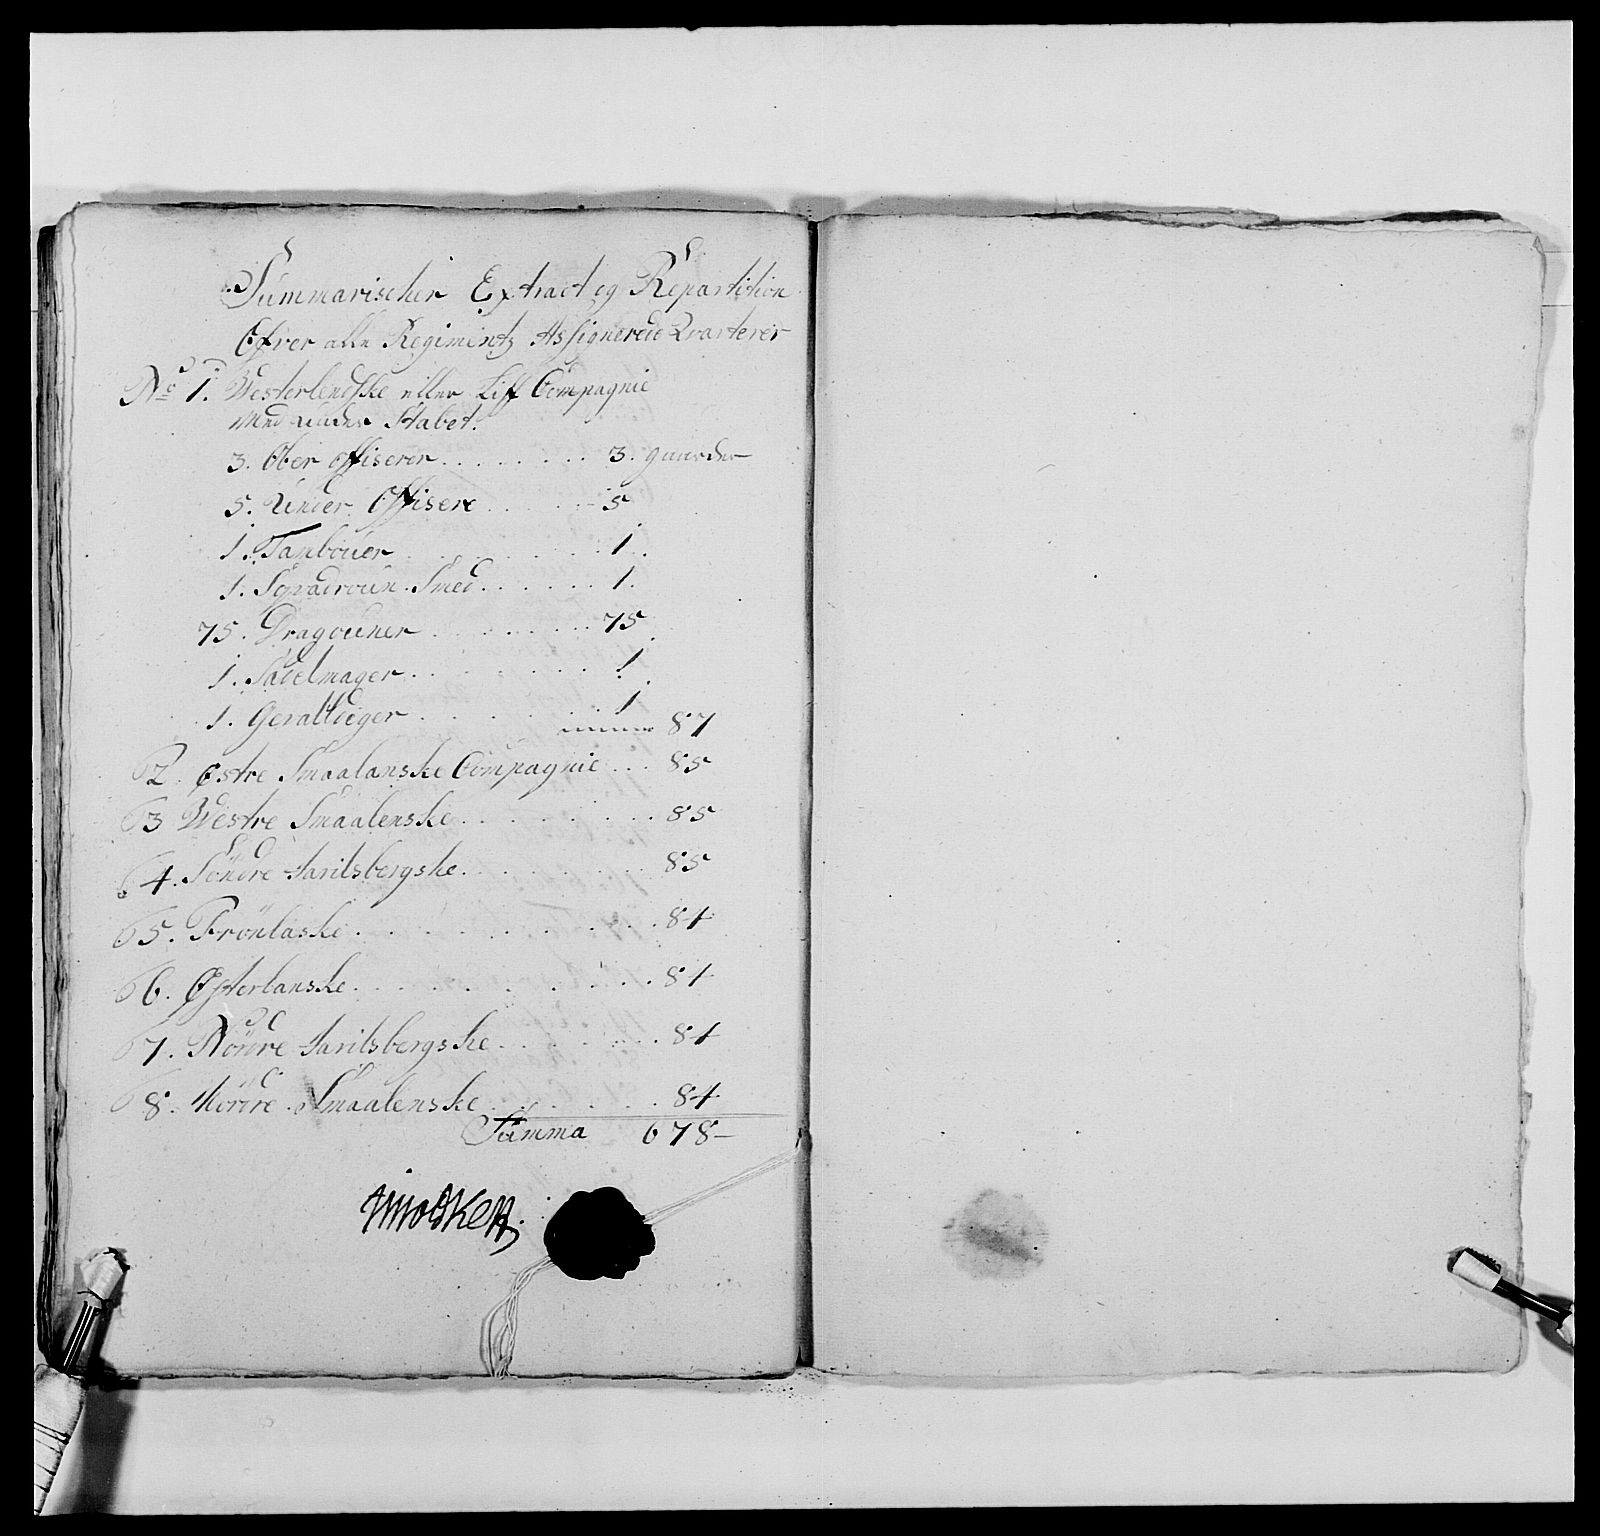 Summarischer Extract og Repartition
Ofver alle Regimentz Assignerede Qvarterer
No 1. Westerlendske eller Liff Compagnie
Med under Stabet.
3. Ober Officerer . . . . . . . . 3. gaarder
5. Under Officere . . . . . . 5
1. Tambouer . . . . . . . . . 1.
1. Sqvadroun Smed . . . . . . 1.
75. Dragouner . . . . . . . 75
1. Sadelmager . . . . . . . . 1
1. Geralldiger . . . . . . . 1
87
2. Østre Smaalanske Compagnie . . . 85
3 Westre Smaalenske . . . . . . . . . 85
4. Söndre Jarilsbergske . . . . . . . 85
5. Frönlaske . . . . . . . . . . 84
6. Østerlanske . . . . . . . . . . 84
7. Nördre Jarilsbergske . . . . . . . 84
8. Nördre Smaalenske . . . . . . . 84
Summa 678